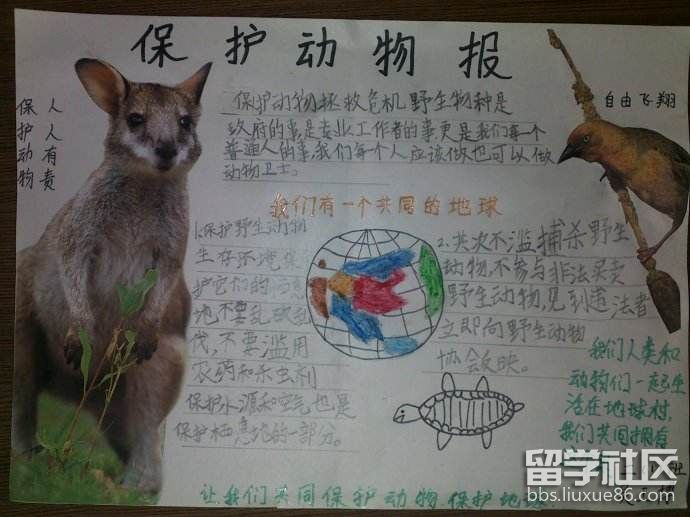 保护动物报
人人有责
保护动物
保护动物拯救危机野生物种是
政府的事,是专业工作者的事更是我们每一个
普通人的事,我们每个人应该做也可以做
动物卫士。
自由飞翔
我们有一个共同的地球
1.保护野生动物
生存环境
护它们的
地不要乱砍乱
伐,不要滥用
农药和杀虫剂
保护水源和空气也是
保护栖息地的一部分。
2.其次不滥捕杀野生
动物,不参与非法买卖
野生动物,见到违法者
立即向野生动物
协会反映。
我们人类和
动物们一起生
活在地球村,
我们共同拥有
让我们共同保护动物保护地球
留学社区
bbs.liuxue86.com